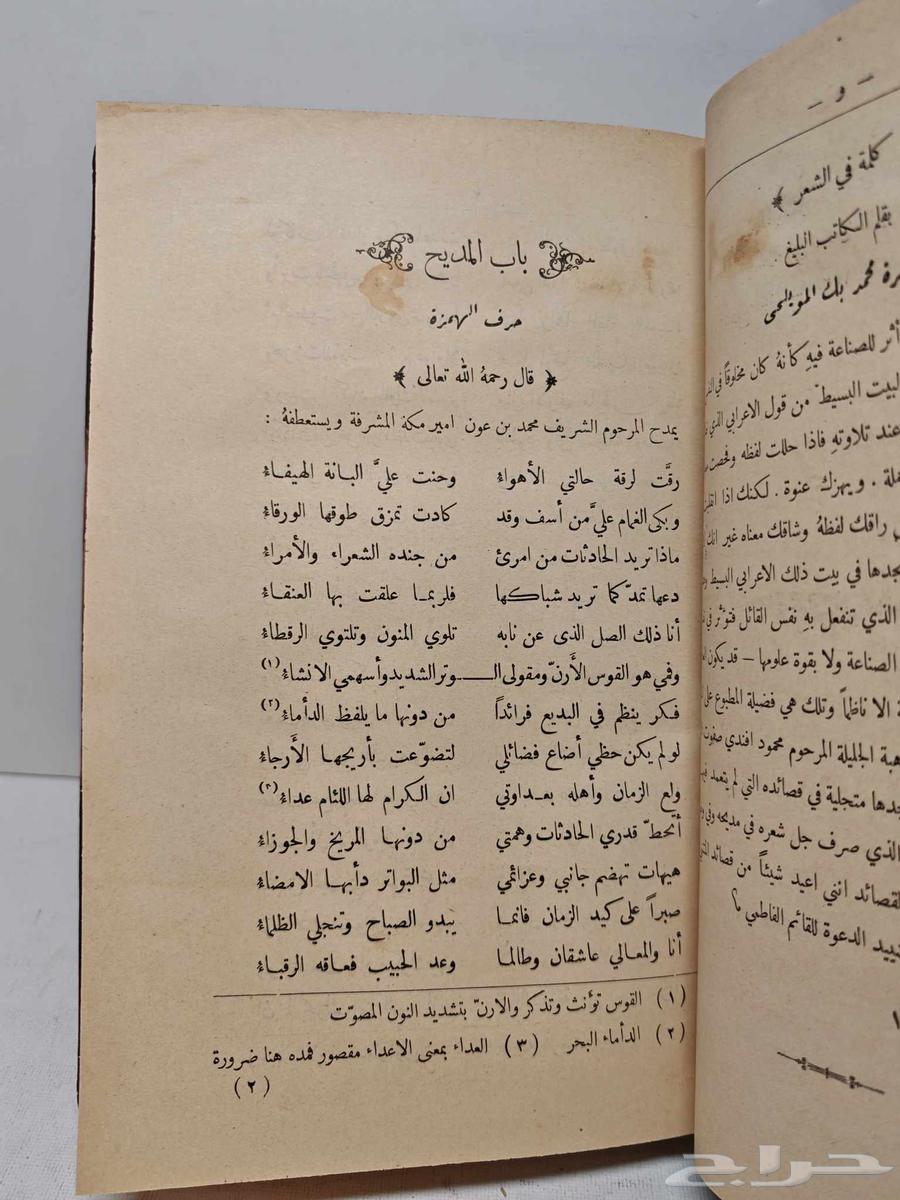 باب المديح
حرف الهمزة
﴿ قال رحمهُ الله تعالى ﴾
يمدح المرحوم الشريف محمد بن عون امير مكة المشرفة ويستعطفهُ :
رقَّت لرقة حالتي الأهواء وحنت عليَّ البانة الهيفاء
وبكى الغمام عليَّ من أسف وقد كادت تمزق طوقها الورقاء
ماذا تريد الحادثات من امرئ من جنده الشعراء والأمراء
دعها تمدّ كما تريد شباكها فلربما علقت بها العنقاء
أنا ذلك الصل الذى عن نابه تلوي المنون وتلتوي الرقطاء
وفمي هو القوس الأرنّ ومقولى الـــوتر الشديد وأسهمي الانشاء (١)
فكر ينظم في البديع فرائداً من دونها ما يلفظ الدأماء (٢)
لو لم يكن حظي أضاع فضائلي لتضوّعت بأريجها الأرجاء
ولع الزمان وأهله بعداوتي ان الكرام لها اللئام عداء (٣)
أتحطّ قدري الحادثات وهمتي من دونها المريخ والجوزاء
هيهات تهضم جانبي وعزائمي مثل البواتر دأبها الامضاء
صبراً على كيد الزمان فانما يبدو الصباح وتنجلي الظلماء
أنا والمعالي عاشقان وطالما وعد الحبيب فعاقه الرقباء
(١) القوس تؤنث وتذكر والارنّ بتشديد النون المصوّت
(٢) الدأماء البحر (٣) العداء بمعنى الاعداء مقصور فمده هنا ضرورة
(٢)
– و –
كلمة في الشعر ﴾
بقلم الكاتب البليغ
محمد بك المويلحى
أثر للصناعة فيهِ كأنهُ كان مخلوقاً في
البيت البسيط من قول الاعرابي الذي
عند تلاوتهِ فاذا حللت لفظه وفحصت
. ويهزك عنوة . لكنك اذا
راقك لفظهُ وشاقك معناه غير انك
يجدها في بيت ذلك الاعرابي البسيط
الذي تنفعل بهِ نفس القائل فتؤثر في
الصناعة ولا بقوة علومها – قد يكون
الا ناظماً وتلك هي فضيلة المطبوع على
الجليلة المرحوم محمود افندي صفوت
متجلية في قصائده التي لم يتعمد
الذي صرف جل شعره في مديحه
القصائد انني اعيد شيئاً من قصائد
الدعوة للقائم الفاطمي
حراج